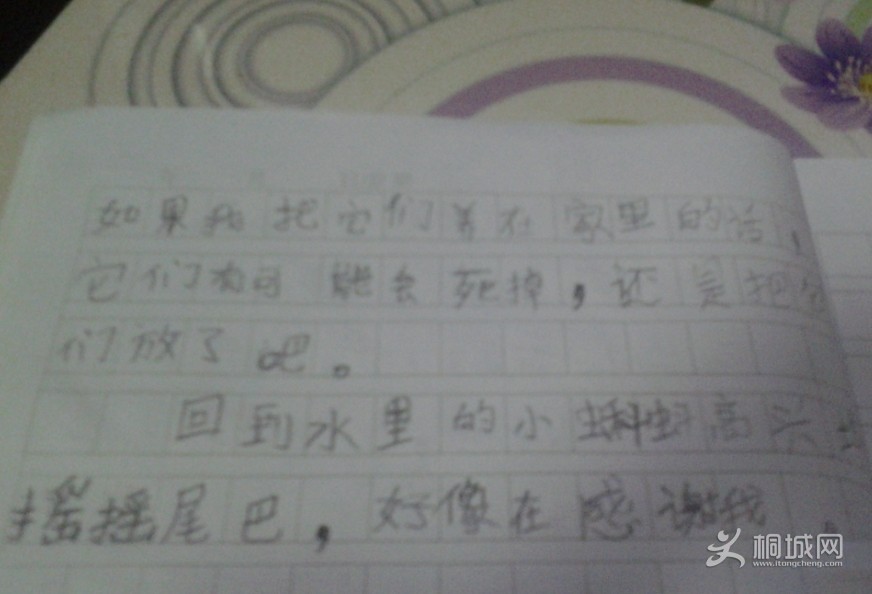 如果我把它们养在家里的话，
它们有可能会死掉，还是把它
们放了吧。
回到水里的小蝌蚪高兴地
摇摇尾巴，好像在感谢我。
桐城网
www.itongcheng.com